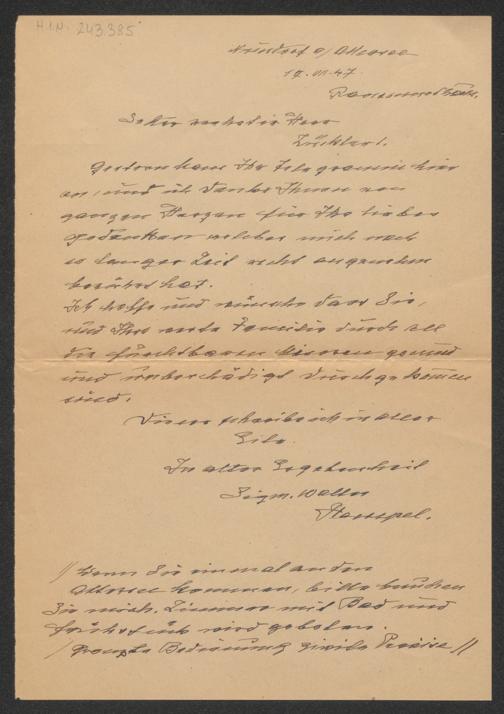 H.I.N. 243.385
Nussdorf a/ Attersee
Sehr verehrter Herr
Gestern kam Ihr Telegramm hier
an, und ich danke Ihnen von
ganzem Herzen für Ihr liebes
Gedenken welches mich nach
so langer Zeit recht angenehm
berührt hat.
Ich hoffe und wünsche dass Sie,
und Ihre werte Familie durch all
die furchtbaren gesund
und unbeschädigt durchgekommen
sind.
Dieses schreibe ich in aller
Eile.
In alter Ergebenheit
Sigm. Walter
// Wenn Sie einmal an den
Attersee kommen, bitte besuchen
Sie mich. Zimmer mit Bad und
Frühstück wird geboten.
Prompte Bedienung zivile Preise //